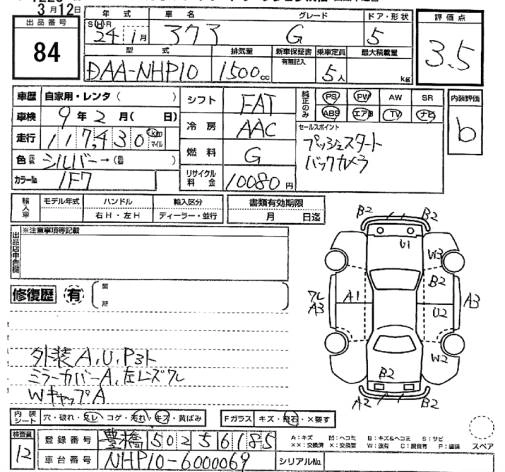 3月12日
出品番号 年式 車名 グレード ドア・形状 評価点
84 S H R 24年 1月 373 G 5 3.5
型式 排気量 新車保証書 有無記入 乗車定員 最大積載量
DAA-NHP10 1500cc 5人 kg
車歴 自家用・レンタ( ) シフト FAT 純正のみ PS PW AW SR 内装評価
車検 9年2月( 日) ABS エアB TV ナビ b
走行 117,430 Km マイル 冷房 AAC セールスポイント
色 シルバー→( ) 燃料 G プッシュスタート
カラーNo 1F7 リサイクル料金 10080円 バックカメラ
輸入車 モデル年式 ハンドル 輸入区分 書類有効期限
右H・左H ディーラー・並行 月 日迄
※注意事項等記載
修復歴 有 ( )
B2 B2
U1 W3
B2
ワレ A3 A1 U2 A3
W2
A2 B2 B2
外装A,U,Pヨト
ミラーカバーA,左レーズワレ
WキャップA
内装 シート 穴・破れ・ヨレ・コゲ・汚れ・キズ・黄ばみ Fガラス キズ・飛石・×要す
検査員 12 登録番号 豊橋 502 5 6185 A:キズ M:ヘコミ B:キズ&ヘコミ S:サビ スペア
車台番号 NHP10-6000069 シリアルNo.